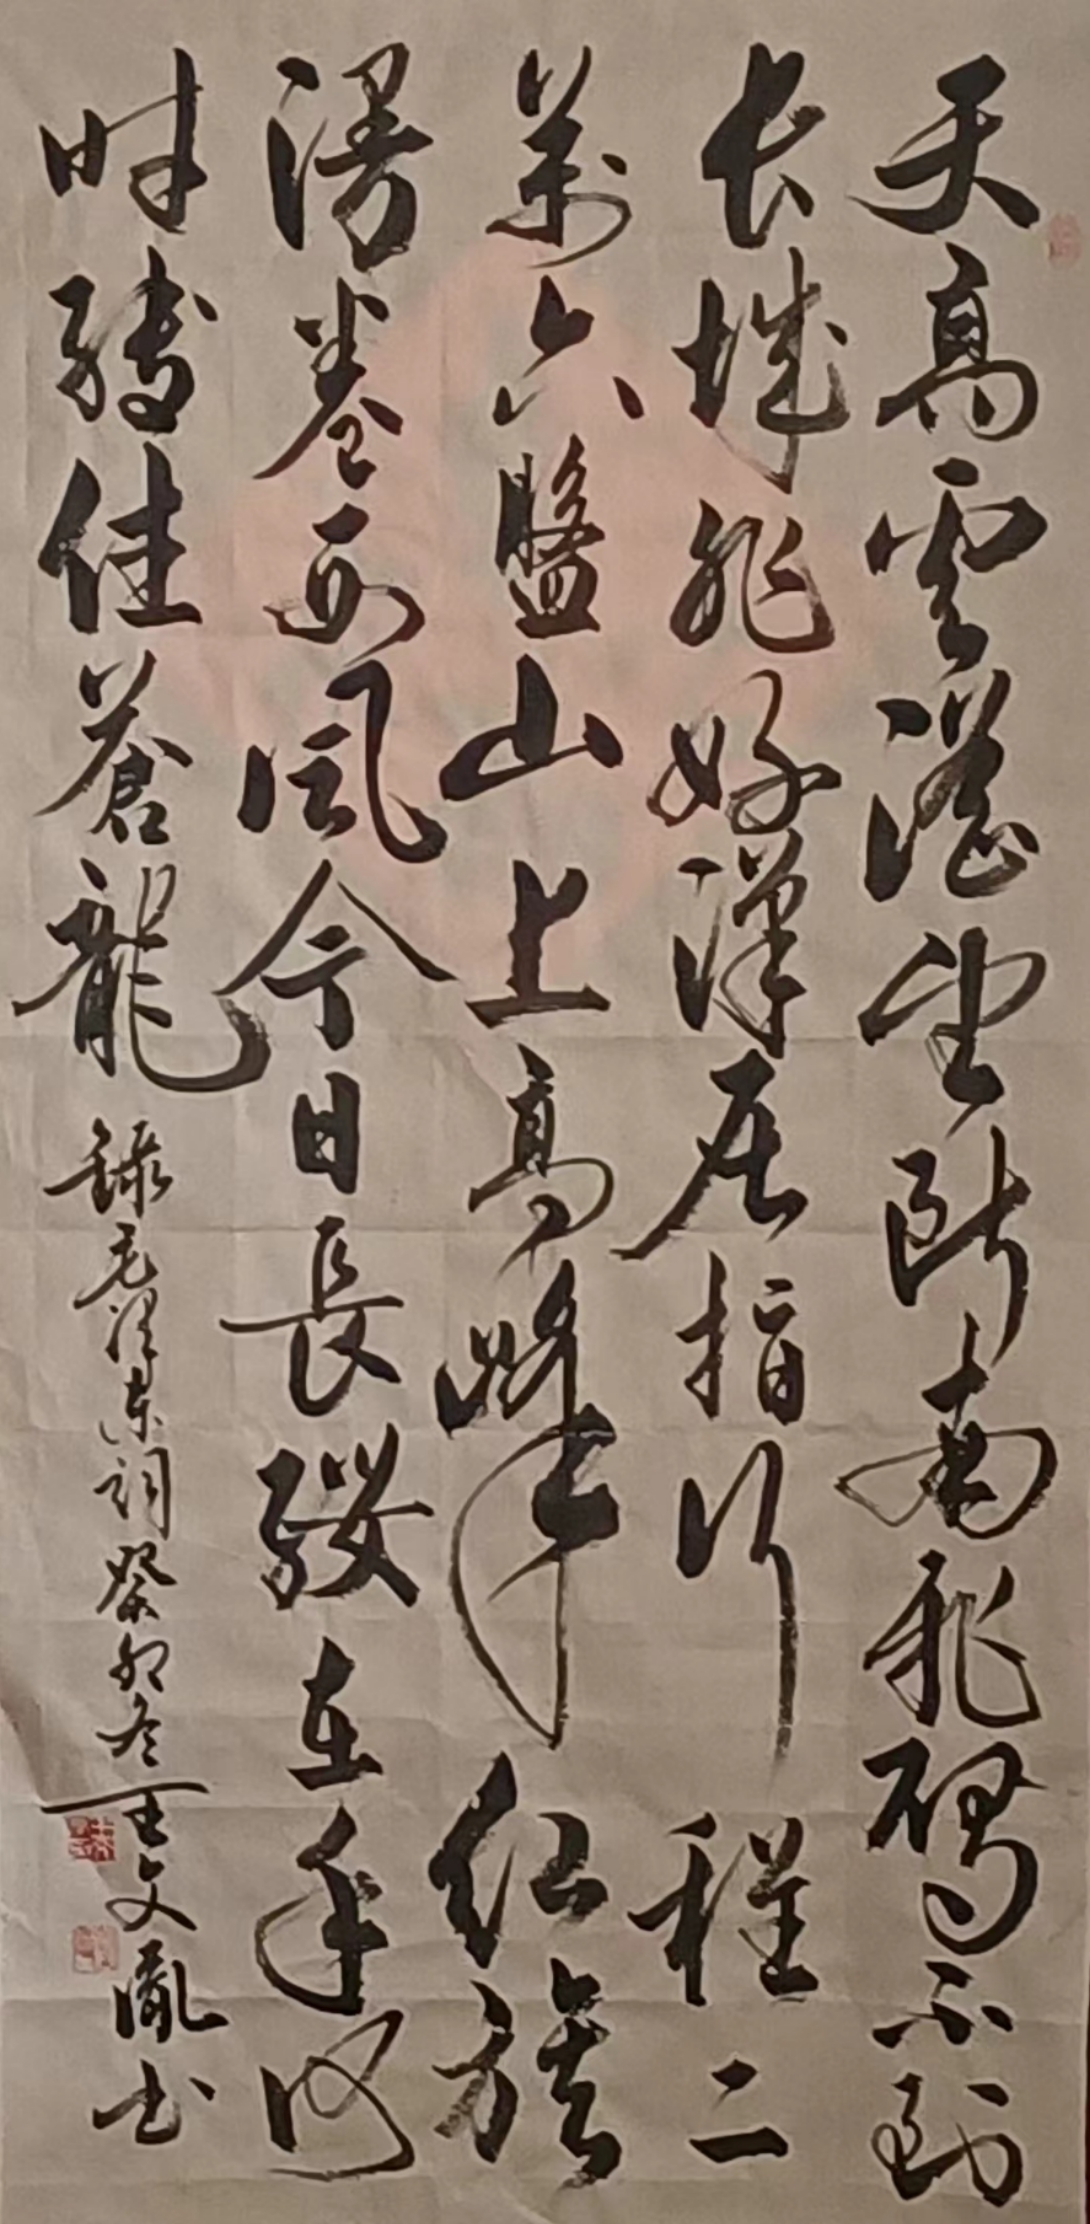 天高雲澹望斷南飛鴈不到
长城非好漢屈指行程二
萬六盤山上高峰红旗
漫卷西风今日長纓在手何
时縛住蒼龍
録毛澤東詞癸卯冬王文胤书